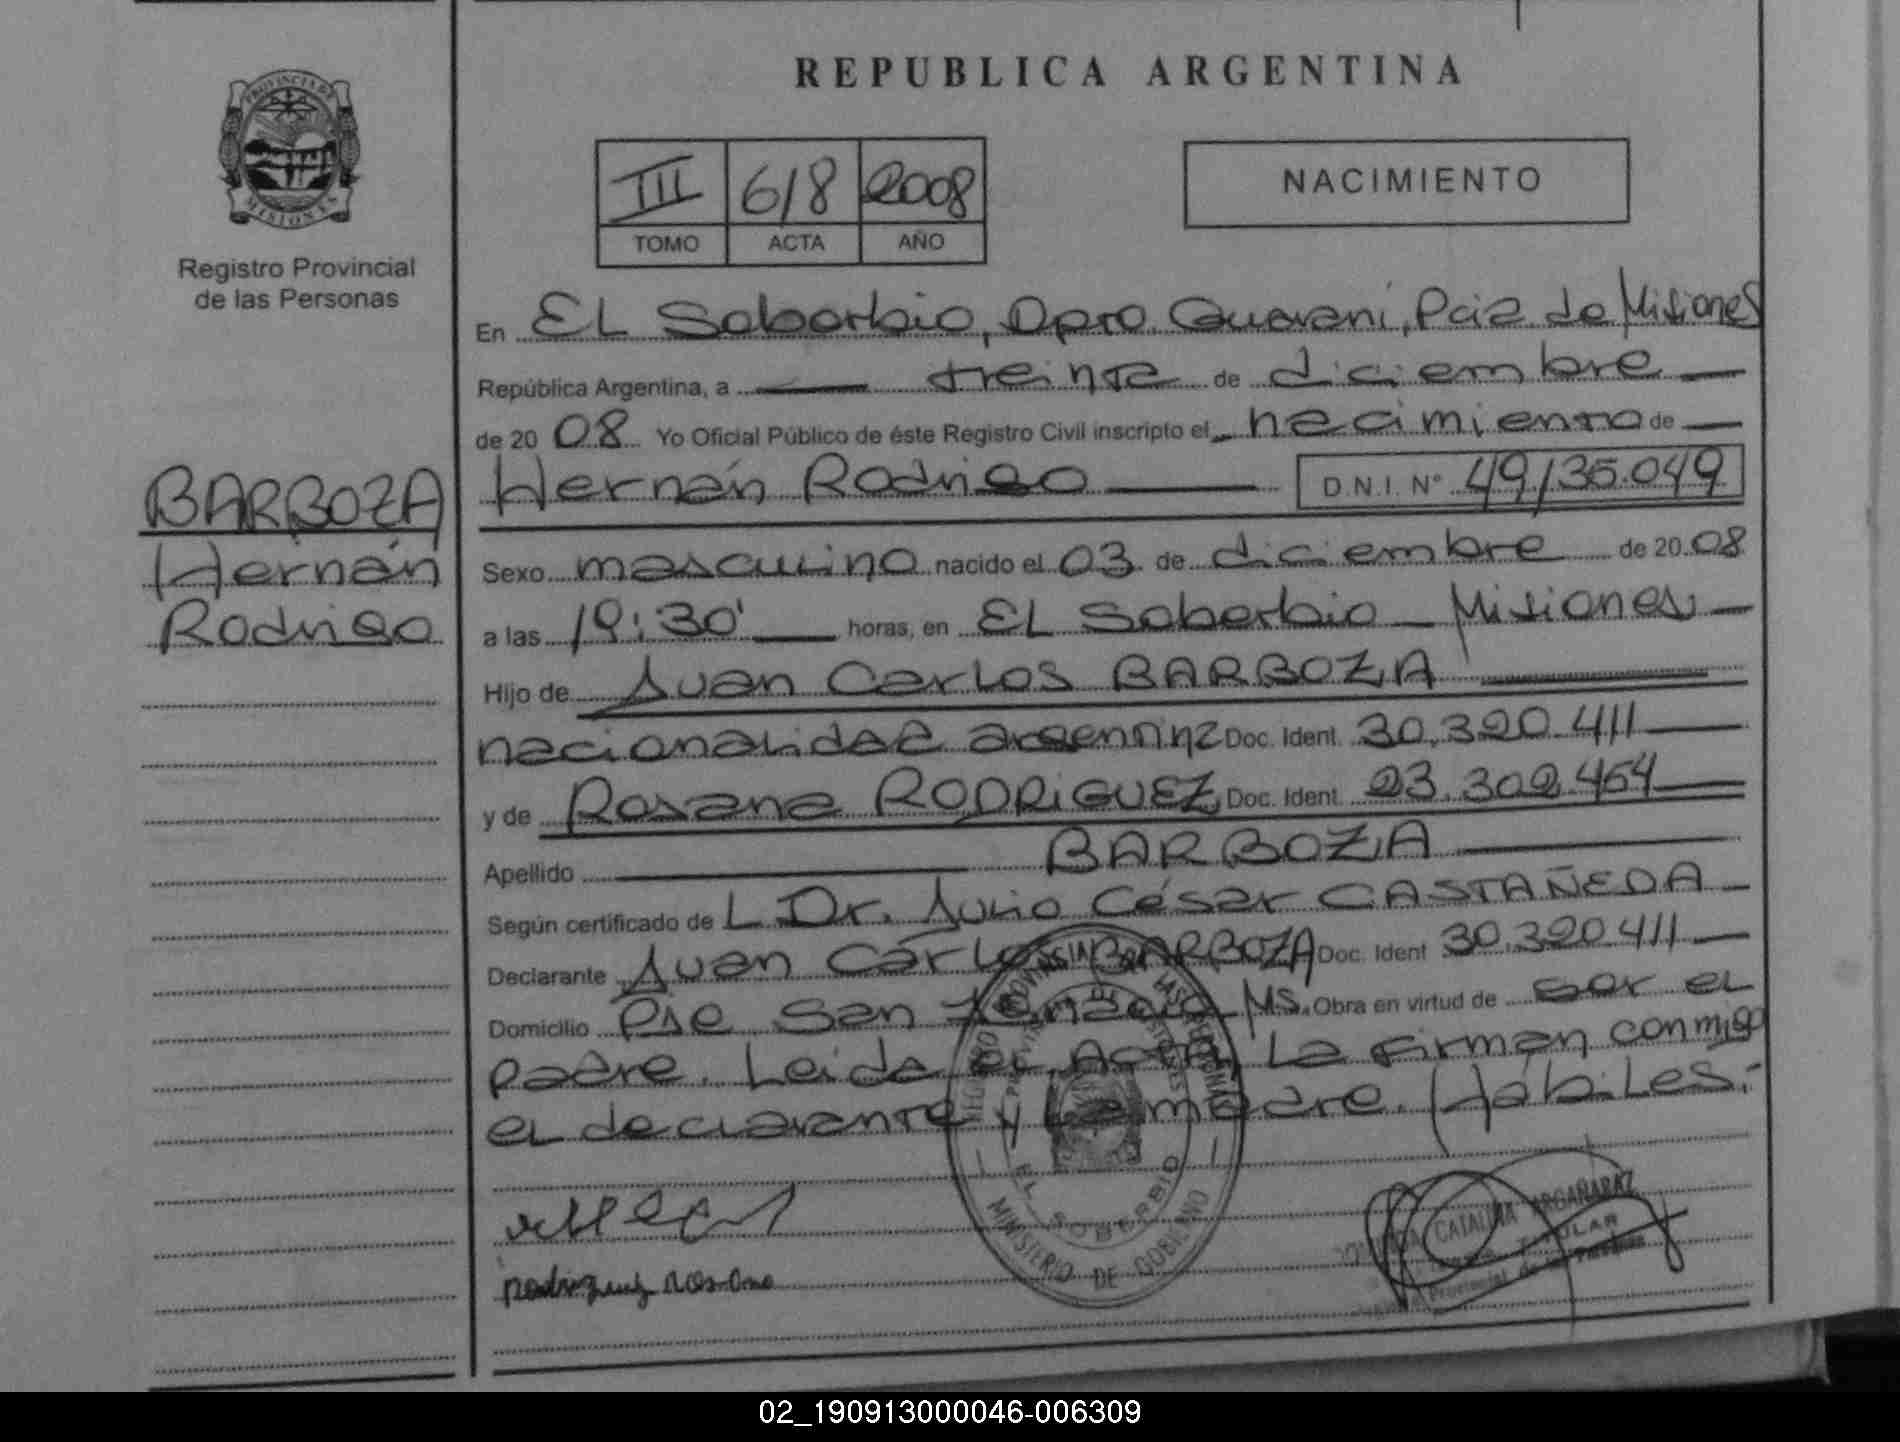 REPUBLICA ARGENTINA
PROVINCIA DE MISIONES
Registro Provincial
de las Personas
III 618 2008
TOMO ACTA AÑO
NACIMIENTO
BARBOZA
Hernán
Rodrigo
En EL Soberbio, Dpto. Guaraní, Pcia de Misiones
República Argentina, a treinta de diciembre
de 2008 Yo Oficial Público de éste Registro Civil inscripto el nacimiento de
Hernán Rodrigo D.N.I. N° 49.135.049
Sexo masculino nacido el 03 de diciembre de 2008
a las 19:30' horas, en EL Soberbio - Misiones
Hijo de Juan Carlos BARBOZA
nacionalidad argentina Doc. Ident. 30.320.411
y de Rosana RODRIGUEZ Doc. Ident. 23.302.464
Apellido BARBOZA
Según certificado de L Dr. Julio César CASTAÑEDA
Declarante Juan Carlos BARBOZA Doc. Ident 30.320.411
Domicilio Pje San MS. Obra en virtud de ser el
padre. Leida el Acta, La firman conmigo
el declarante y la madre. Hábiles.
EL SOBERBIO
MINISTERIO DE GOBIERNO
Rodriguez Rosana
CATALINA ARGAÑARAZ
TITULAR
02_190913000046-006309